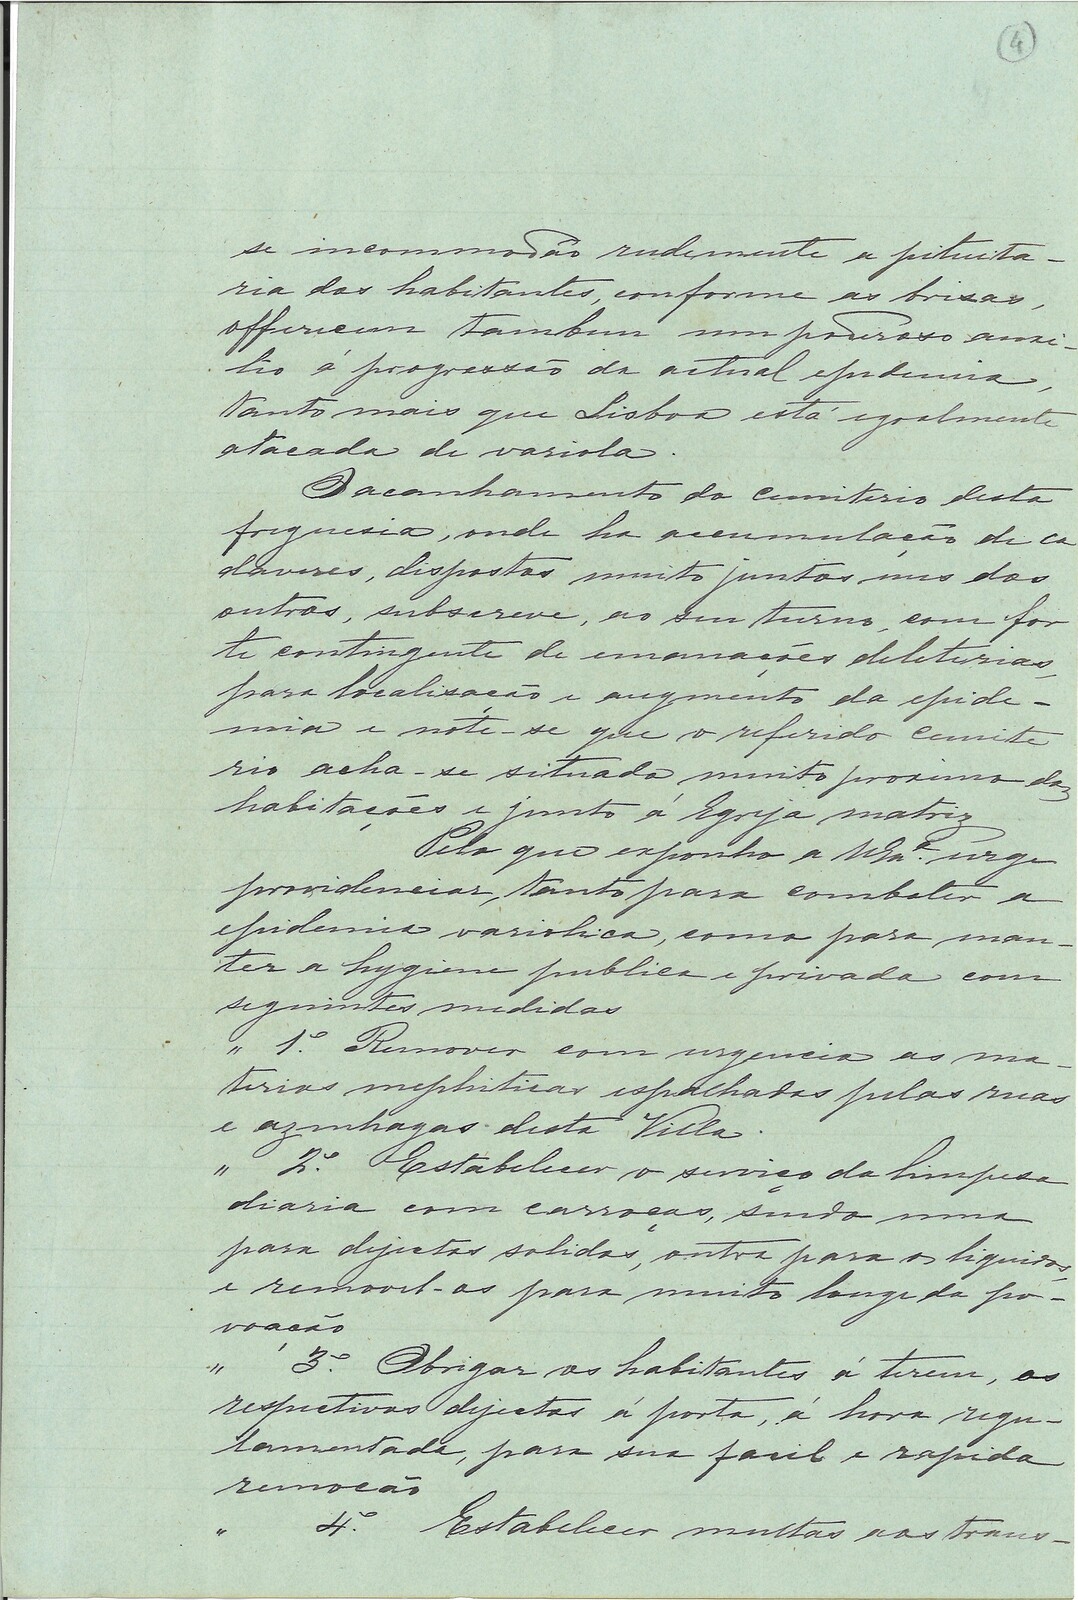 4
se incommodão rudemente a pituita-
ria dos habitantes, conforme as brisas,
offerecem tambem um poderoso auxi-
lio á progressão da actual epidemia,
tanto mais que Lisboa está egualmente
atacada de variola.
O acanhamento do cemiterio desta
freguesia, onde ha accumulação de ca
daveres, dispostos muito juntos uns dos
outros, subscreve, ao seu turno, com for
te contingente de emanações deleterias,
para localisação e augmento da epide-
mia e note-se que o referido cemite
rio acha-se situado muito proximo das
habitações e junto á Egreja matriz
Pelo que exponho a V Exª. urge
providenciar, tanto para combater a
epidemia variolica, como para man-
ter a hygiene publica e privada com
seguintes medidas
" 1º. Remover com urgencia as ma-
terias mephiticas espalhadas pelas ruas
e azinhagas desta Villa.
" 2º. Estabelecer o serviço da limpesa
diaria com carroças, sendo uma
para dejectos solidos, outra para os liquidos,
e removel-os para muito longe da po-
voação
" 3º. Obrigar os habitantes á terem, os
respectivos dejectos á porta, á hora regu-
lamentada, para sua facil e rapida
remoção
" 4º. Estabelecer multas aos trans-